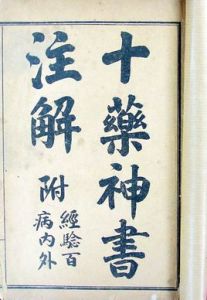 十藥神書
注解
附
經驗百
病內外